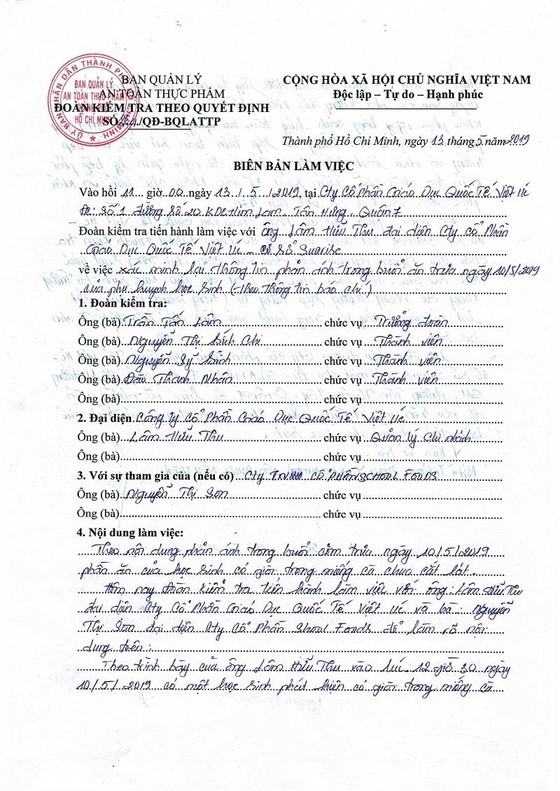 BAN QUẢN LÝ
AN TOÀN THỰC PHẨM
ĐOÀN KIỂM TRA THEO QUYẾT ĐỊNH
SỐ /QĐ-BQLATTP
CỘNG HÒA XÃ HỘI CHỦ NGHĨA VIỆT NAM
Độc lập – Tự do – Hạnh phúc
Thành phố Hồ Chí Minh, ngày 13 tháng 5 năm 2019
BIÊN BẢN LÀM VIỆC
Vào hồi 11 giờ 00 ngày 13 / 5 / 2019, tại Cty Cổ Phần Giáo Dục Quốc Tế Việt Úc
Đc: Số 1 đường Số 20 KDC Him Lam Tân Hưng Quận 7
Đoàn kiểm tra tiến hành làm việc với ông Lâm Hữu Thu đại diện Cty Cổ Phần
Giáo Dục Quốc Tế Việt Úc - Cơ Sở Sunrise
về việc xác minh lại thông tin phản ánh trong buổi ăn trưa ngày 10/5/2019
của phụ huynh học sinh (Theo thông tin báo chí)
1. Đoàn kiểm tra:
Ông (bà) Trần Tấn Lâm chức vụ Trưởng đoàn
Ông (bà) Nguyễn Thị Bích Chi chức vụ Thành viên
Ông (bà) Nguyễn Sỹ Bình chức vụ Thành viên
Ông (bà) Đào Thanh Nhân chức vụ Thành viên
Ông (bà) chức vụ
2. Đại diện Công ty Cổ Phần Giáo Dục Quốc Tế Việt Úc
Ông (bà) Lâm Hữu Thu chức vụ Quản lý Chi nhánh
Ông (bà) chức vụ
3. Với sự tham gia của (nếu có) Cty CỔ PHẦN SCHOOL FOODS
Ông (bà) Nguyễn Thị Son chức vụ
Ông (bà) chức vụ
4. Nội dung làm việc:
Theo nội dung phản ánh trong buổi cơm trưa ngày 10/5/2019
phần ăn của học sinh có giòi trong miếng cà chua cắt lát.
Hôm nay đoàn kiểm tra tiến hành làm việc với ông: Lâm Hữu Thu
đại diện Cty Cổ Phần Giáo Dục Quốc Tế Việt Úc và bà Nguyễn
Thị Son đại diện Cty Cổ Phần School Foods để làm rõ nội
dung trên:
Theo trình bày của ông Lâm Hữu Thu vào lúc 12 giờ 30 ngày
10/5/2019 có một học sinh phát hiện có giòi trong miếng cà